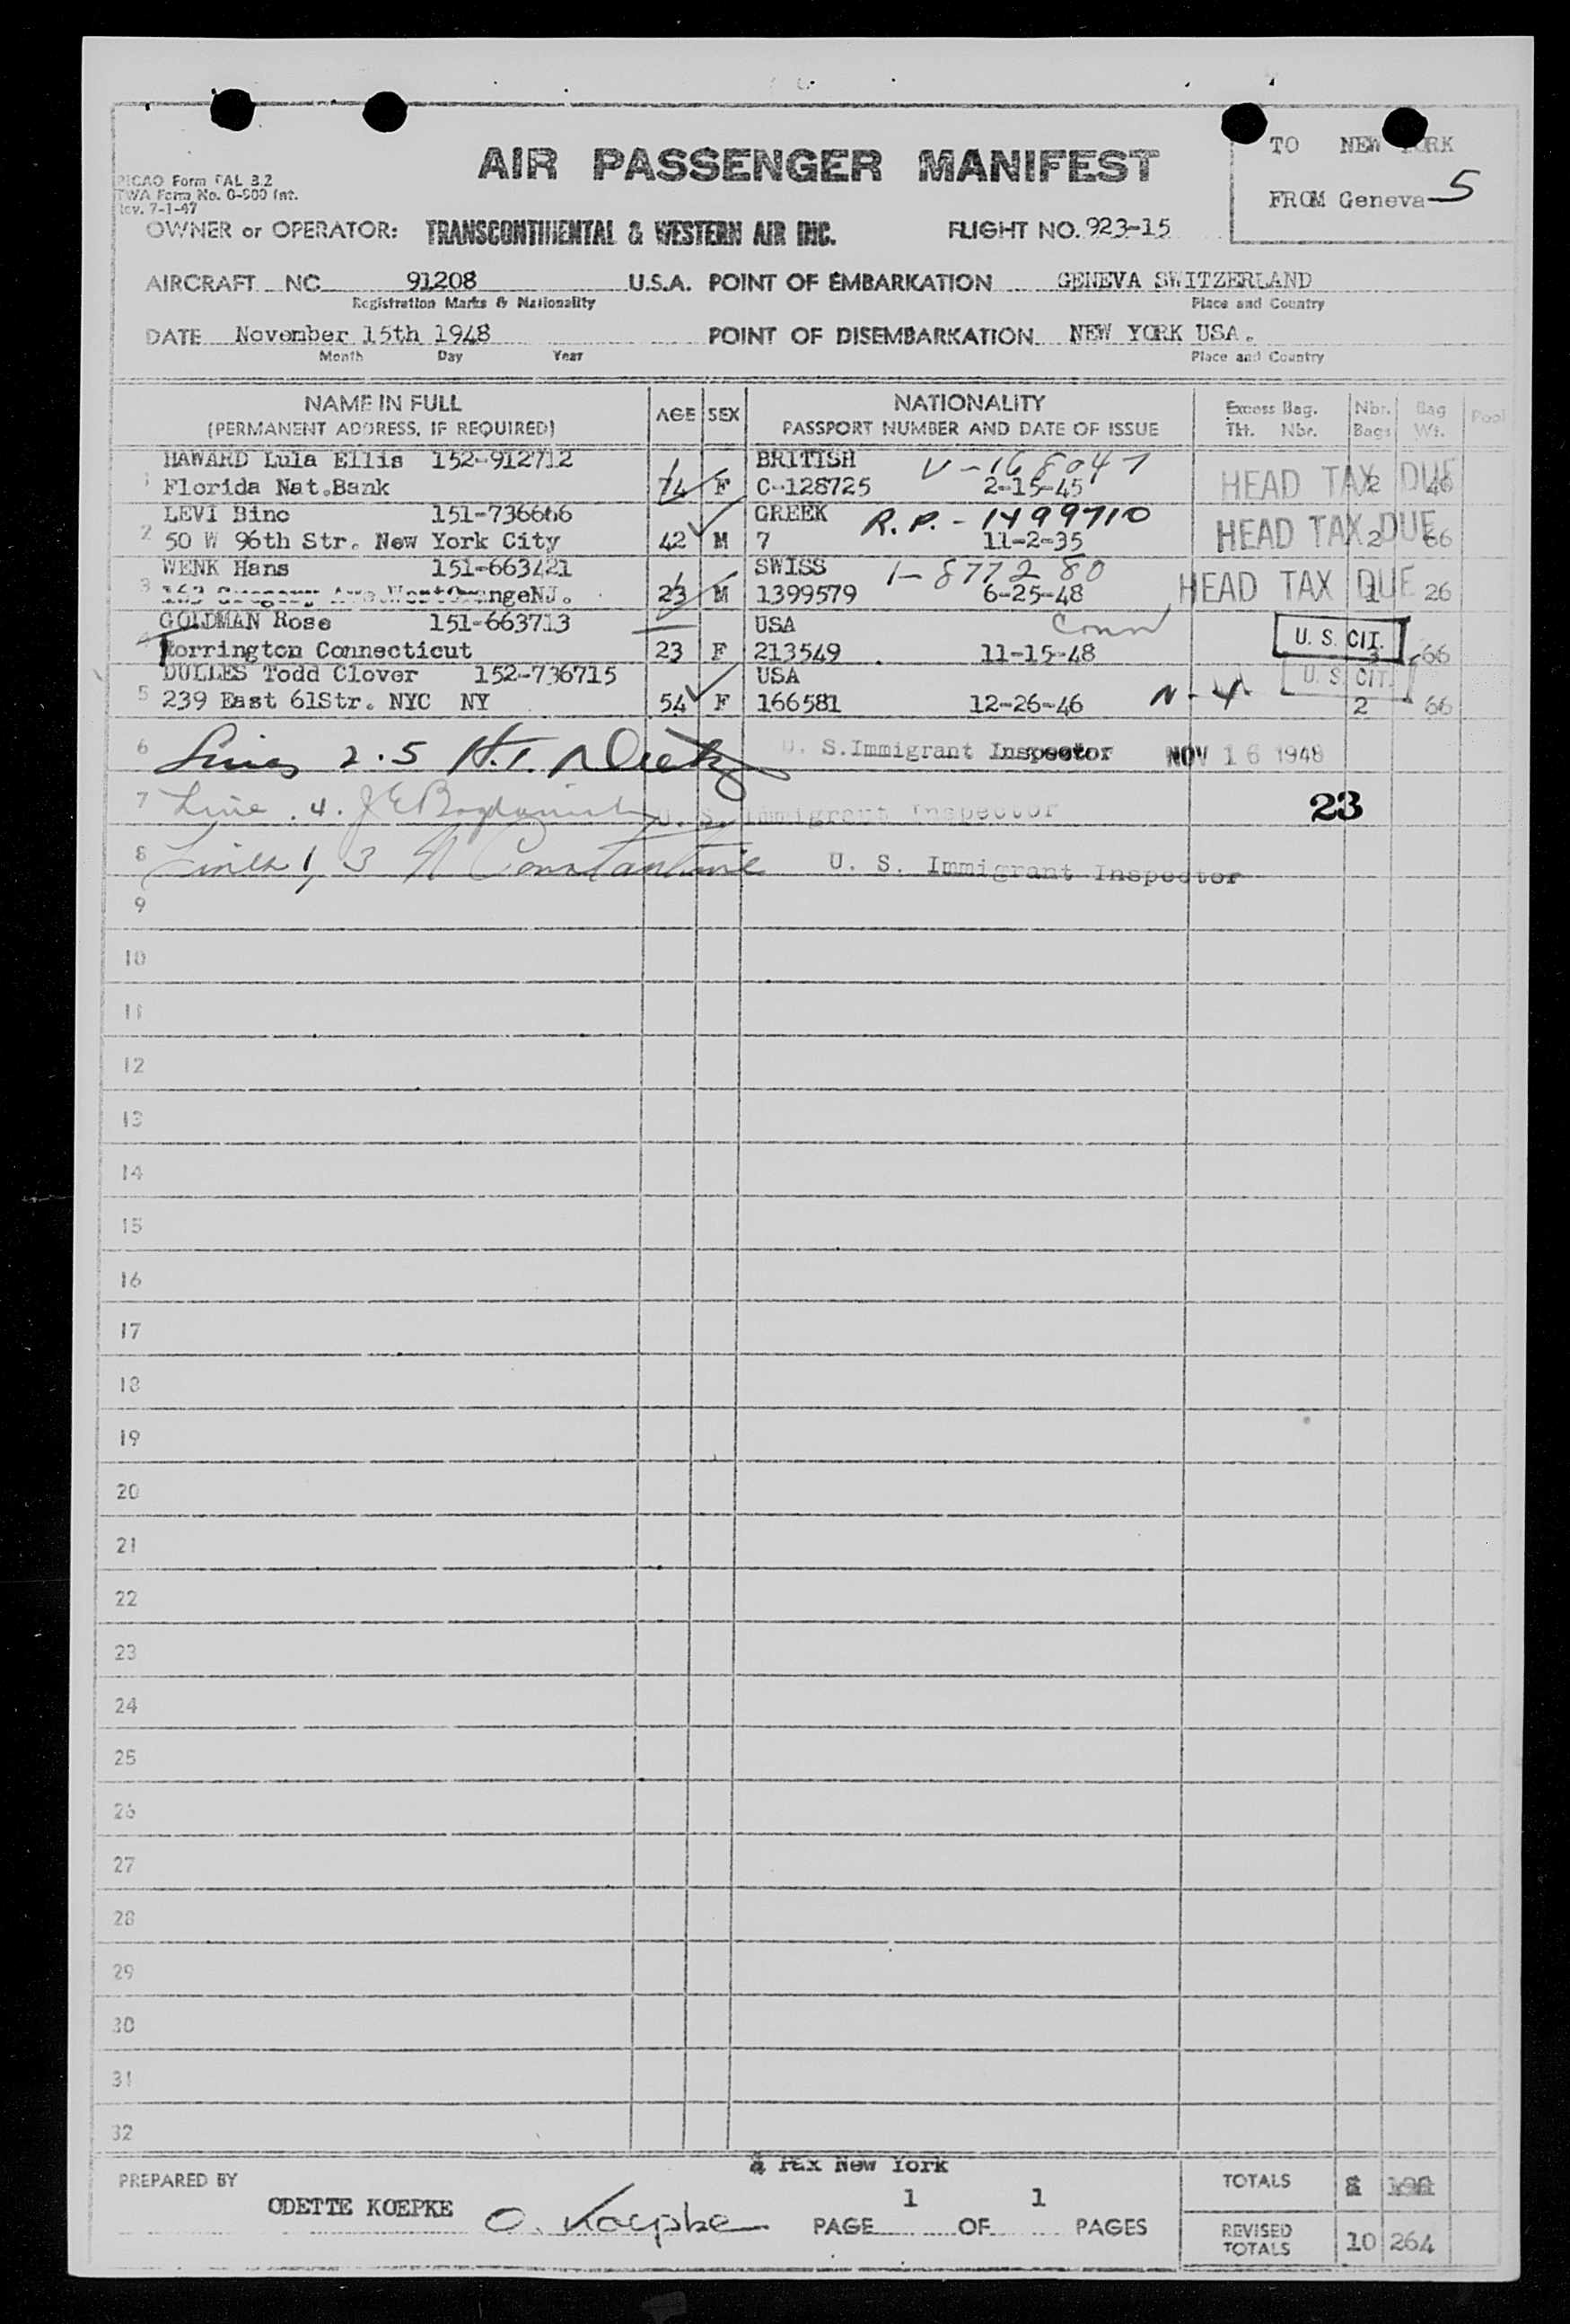 TO NEW YORK
AIR PASSENGER MANIFEST
PICAO Form FAL 3.2
TWA Form No. 0-500 Int.
Rev. 7-1-47
FROM Geneva 5
OWNER or OPERATOR: TRANSCONTINENTAL & WESTERN AIR INC. FLIGHT NO. 923-15
AIRCRAFT NC 91208 U.S.A. POINT OF EMBARKATION GENEVA SWITZERLAND
Registration Marks & Nationality Place and Country
DATE November 15th 1948 POINT OF DISEMBARKATION NEW YORK USA.
Month Day Year Place and Country
NAME IN FULL AGE SEX NATIONALITY Excess Bag. Nbr. Bag Pool
(PERMANENT ADDRESS, IF REQUIRED) PASSPORT NUMBER AND DATE OF ISSUE Tkt. Nbr. Bags Wt.
HAWARD Lula Ellis 152-912712 BRITISH V-168047
1 Florida Nat.Bank 74 F C-128725 2-15-45 HEAD TAX DUE 2 40
LEVI Bino 151-736666 GREEK R.P. - 1499710
2 50 W 96th Str. New York City 42 M 7 11-2-35 HEAD TAX DUE 2 66
WENK Hans 151-663421 SWISS 1-877280
3 163 Gregory Ave.WestOrangeNJ. 23 M 1399579 6-25-48 HEAD TAX DUE 1 26
GOLDMAN Rose 151-663713 USA Conn
Torrington Connecticut 23 F 213549 11-15-48 U. S. CIT. 3 66
DULLES Todd Clover 152-736715 USA U. S. CIT.
5 239 East 61Str. NYC NY 54 F 166581 12-26-46 N-Y 2 66
6 Lines 2.5 H.T. U. S. Immigrant Inspector NOV 16 1948
7 Line . 4. U. S. Immigrant Inspector 23
8 Lines 1, 3 N Constantine U. S. Immigrant Inspector
9
10
11
12
13
14
15
16
17
18
19
20
21
22
23
24
25
26
27
28
29
30
31
32
Pax New York
PREPARED BY TOTALS 8
ODETTE KOEPKE O. Koepke PAGE 1 OF 1 PAGES
REVISED TOTALS 10 264